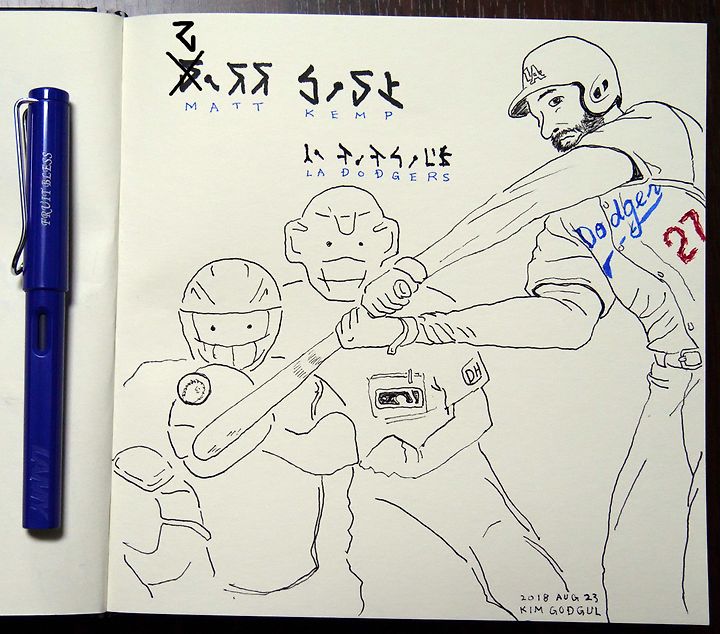 MATT KEMP
LA DODGERS
LA
Dodgers
27
DH
2018 AUG 23
KIM GODGUL
FRUIT BLESS
LAMY